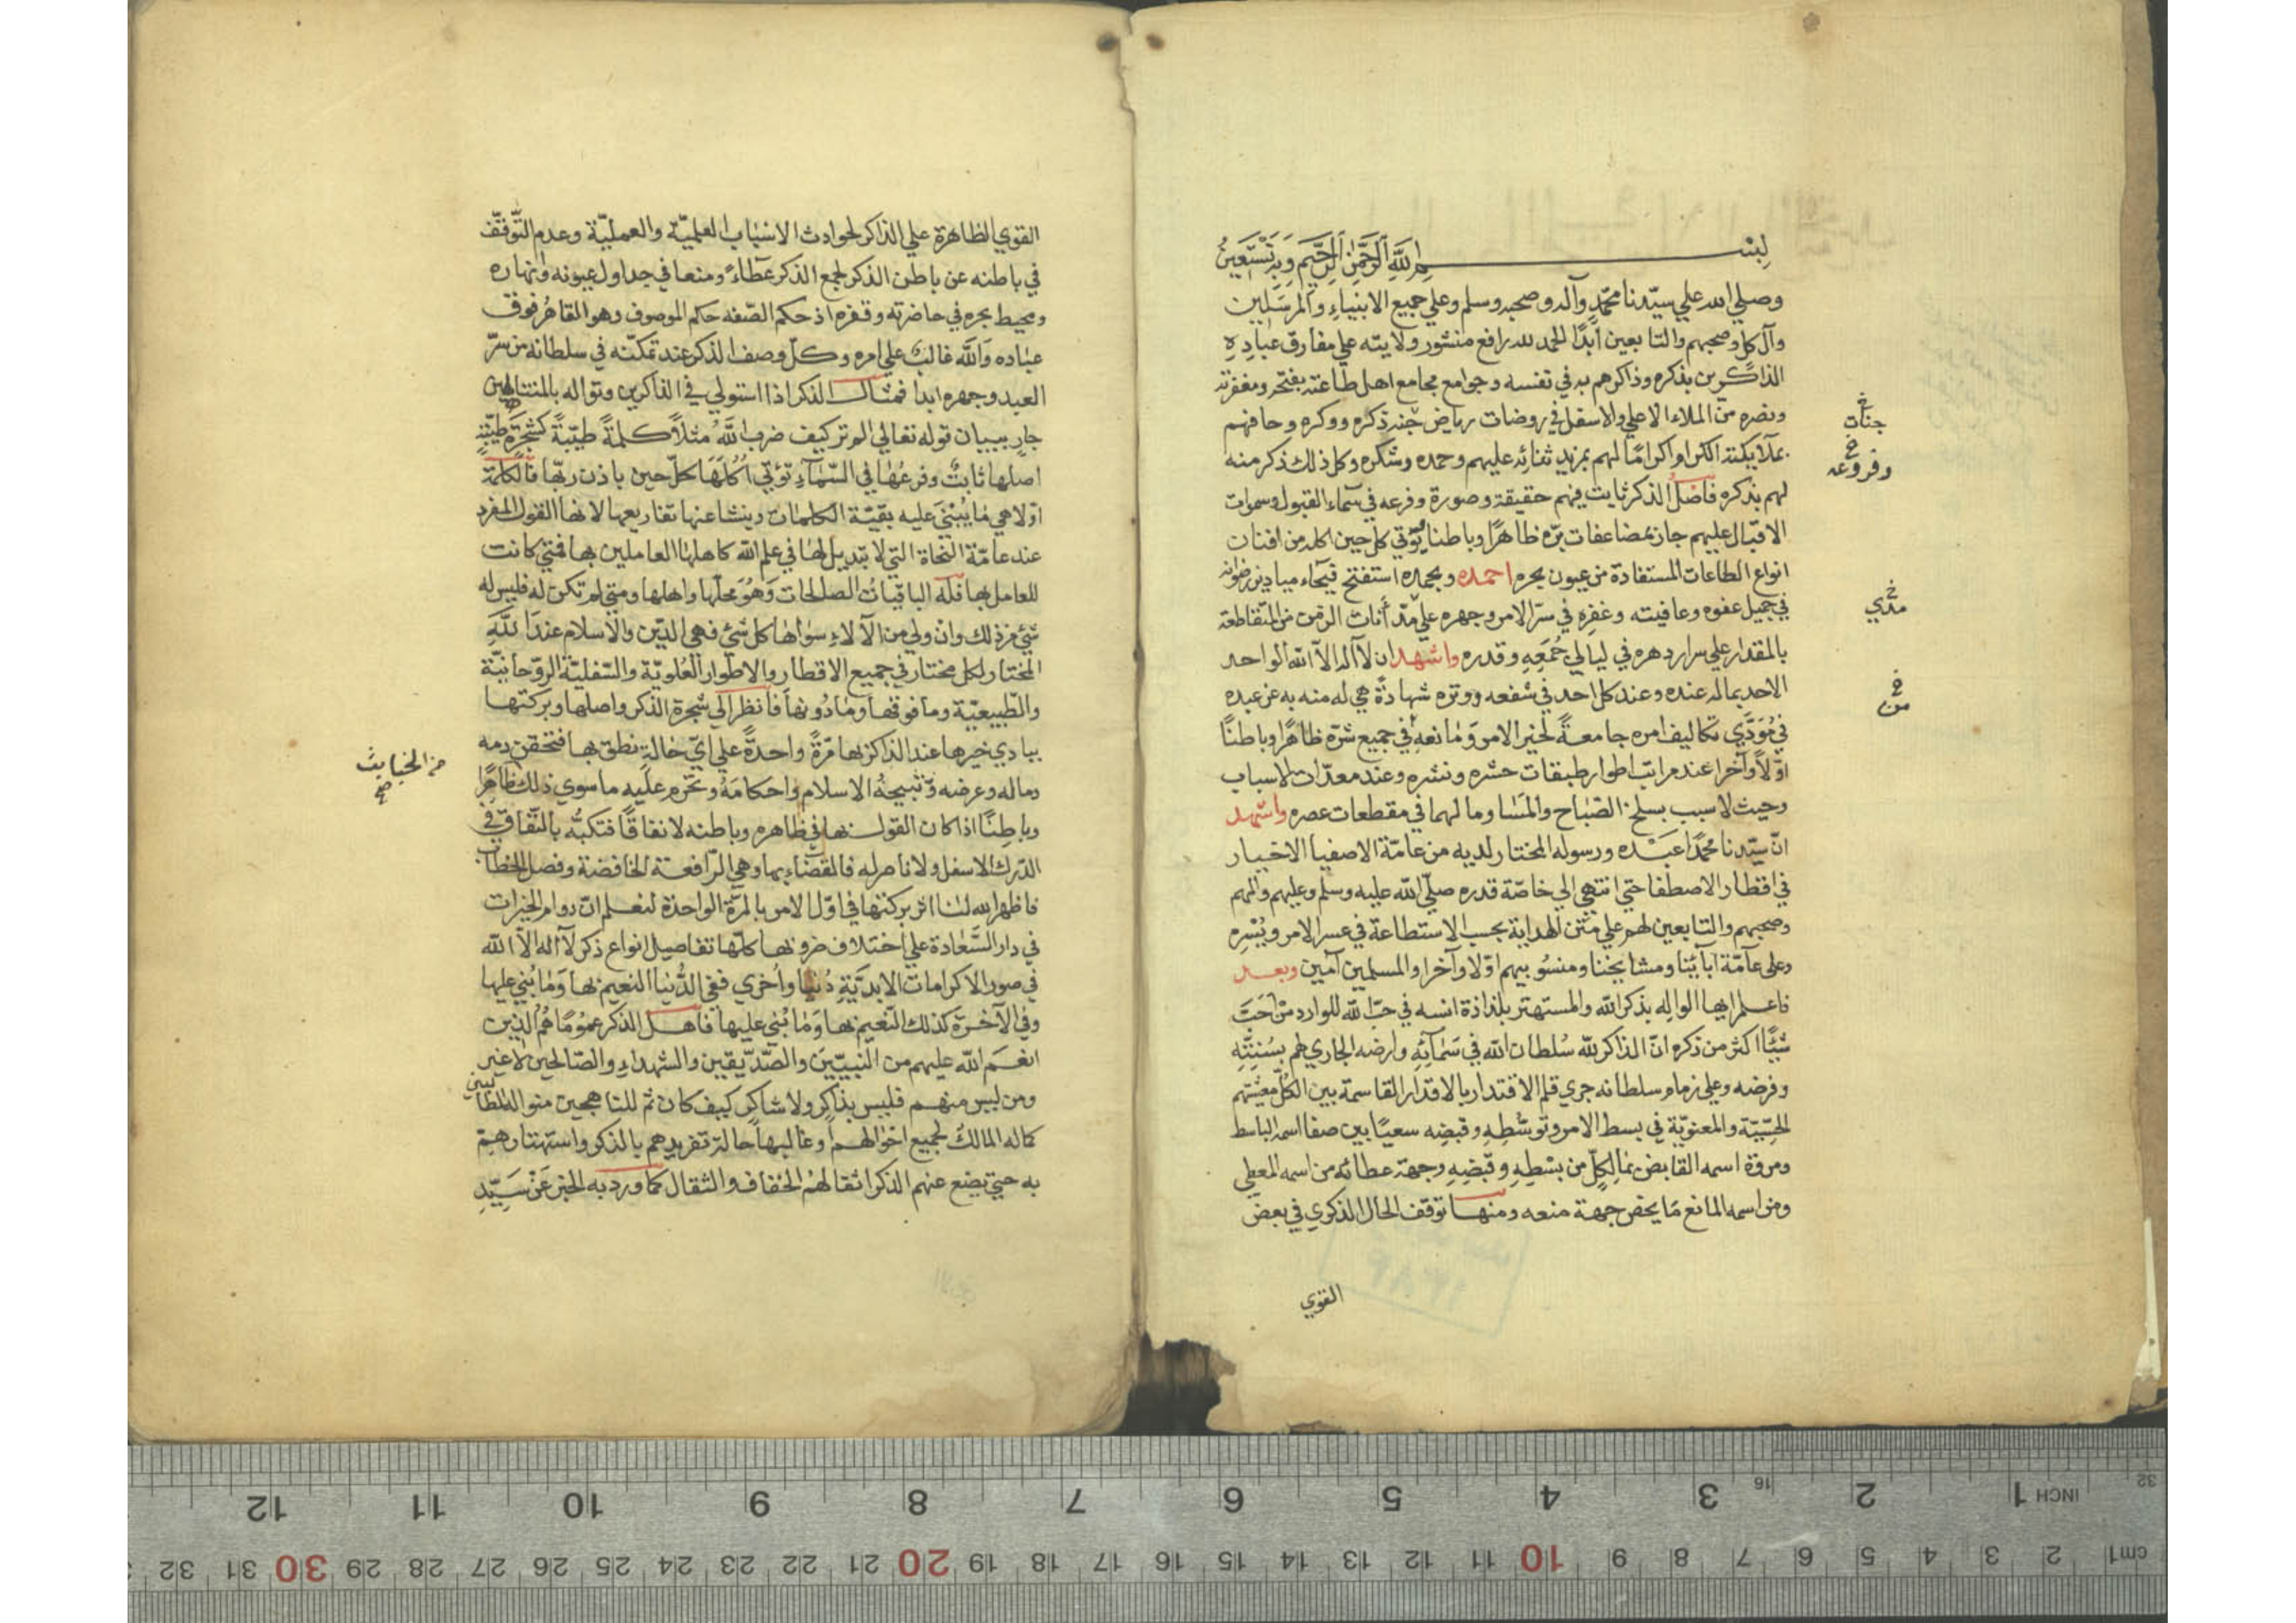 بسم الله الرحمن الرحيم وبه نستعين
وصلي الله علي سيّدنا محمّد وآله وصحبه وسلم وعلي جميع الانبياء والمرسلين
وآل كل وصحبهم والتابعين أبدًا الحمد لله رافع منشور ولايته علي مفارق عباده
الذاكرين بذكره وذاكرهم به في نفسه وجوامع مجامع اهل طاعته بفتحه ومغفرته
ونصره من الملاء الاعلي والاسفل في روضات رياض جنة ذكره ووكره وحافهم
بملايكته اكراما لهم بمزيد ثنائه عليهم وحمده وشكره وكل ذلك ذكر منه
لهم بذكره فاصل الذكر ثابت فيهم حقيقة وصورة وفرعه في سماء القبول وسموات
الاقبال عليهم جار بمضاعفات برّه ظاهرًا وباطنا يؤتي كل حين اكله من افنان
انواع الطاعات المستفادة من عيون بحره احمده وبحمده استفتح فيحاء ميادين رضوانه
في جميل عفوه وعافيته وغفره في سرّ الامر وجهره علي مدّ أنات الزمن المتقاطعة
بالمقدار علي سرار دهره في ليالي جُمَعِهِ وقدره واشهد ان لا آله الاّ الله الواحد
الاحد بماله عنده وعند كل احد في شفعه ووتره شهادةً هي له منه به عن عبده
في مُؤدّي تكاليف امره جامعةً لخير الامر ومانعه في جميع شرّه ظاهرًا وباطنًا
اوّلاً وآخرا عند مراتب اطوار طبقات حشره ونشره وعند معدّات الاسباب
وحيث لا سبب بسلخ الصّباح والمسا وما لهما في مقطعات عصره واشهد
انّ سيّدنا محمّدًا عبده ورسوله المختار لديه من عامّة الاصفيا الاخيار
في اقطار الاصطفا حتي انتهي الي خاصّة قدره صلّي الله عليه وسلّم وعليهم وآلهم
وصحبهم والتابعين لهم علي متن الهداية بحسب الاستطاعة في عسر الامر ويُسْرِه
وعلي عآمّة آبائنا ومشايخنا ومنسُوبيهم اوّلا وآخرا والمسلمين آمين وبعد
فاعلم ايها الواله بذكر الله والمستهتر بلذاذة انسه في حبّ الله للوارد من احَبَّ
شيًّا اكثر من ذكره انّ الذاكر لله سُلطان الله في سَمآئِه وارضه الجاري لهم بسُنّته
وفرضه وعلي زمام سلطانه جري قلم الاقتدار بالاقدار القاسمة بين الكُلّ معيشتهم
الحسّيّة والمعنويّة في بسط الامر وتوسّطِهِ وقبضِه سعيًا بين صفا اسمه الباسط
ومروة اسمه القابض بما لِكلٍّ من بسْطِهِ وقبضِهِ وجهة عطائه من اسمه المعطي
ومن اسمه المانع مَا يخص جهة منعه ومنها توقف الحال الذكوري في بعض
القوي
جنات خ
وفروعه خ
مدي خ
من خ
القوي الظاهرة علي الذاكر لحوادث الاسباب العلميّة والعمليّة وعدم التّوقّف
في باطنه عن باطن الذكر لجمع الذكر عَطاءً ومنعا في جداول عيونه وانهاره
ومحيط بحره في حاضرته وقفره اذ حكم الصّفه حكم الموصوف وهو القاهرُ فوق
عباده وَالله غالب علي امره وكلّ وصف الذكر عند تمكّنه في سلطانه من سرّ
العبد وجهره ابدا فمثال الذكر اذا استولي في الذاكرين وتواله بالمتتالهين
جارٍ ببيان قوله تعالي الم تر كيف ضرب اللهُ مثلاً كلمةً طيّبةً كشجرَةٍ طيّبَةٍ
اصلها ثابتٌ وفرعُها في السّماءِ تؤتي اكُلَهَا كلّ حين باذن ربّها فالكلمة
اوّلا هي مَا يُبْنيَ عليه بقيّة الكلمات وينشا عنها تفاريعها لانها القول المفرد
عند عامّة النحاة التي لا تبديل لها في علم الله كاهلها العاملين بها فمتي كانت
للعامل بها فله الباقيات الصالحات وَهُوَ محلّها واهلها ومتي لم تكن له فليس له
شيْ من ذلك وانْ ولي من الآلاء سواها كل شيْ فهي الدّين والاسلام عند اللهِ
المختار لكل مختار في جميع الاقطار والاطوار العُلويّة والسّفليّة الروّحانيّة
والطّبيعيّة وما فوقها ومادُونها فانظر الَي شجرة الذكر واصلها وبركتها
ببادي خيرها عند الذاكر بها مَرّةً واحدةً علي ايّ حَالةٍ نطق بها فتحقن دمه
وماله وعرضه وتبيحهُ الاسلام واحكامَهُ وتحرم عليه ما سوي ذلك ظاهرًا
وباطِنًا اذا كان القول بها في ظاهره وباطنه لا نفاقًا فتكبُّه بالنّفاق في
الدّرك الاسفل ولا ناصر له فالقضاء بها وهي الرّافعة الخافضة وفصل الخطاب
فاظهر الله لنا اثر بركتها في اوّل الامر بالمرّة الواحدة لنعلم انّ دوام الخيرات
في دار السَّعادة علي اختلاف ضروبها كلّها تفاصيل انواع ذكر لآ اله الاّ الله
في صور الاكرامات الابديّة دُنيا واُخري ففي الدُّنيا النعيم بها وَمَا بُني عليها
وفي الآخرة كذلك النّعيم بها وَمَا بُني عليها فاهل الذكر عمُومًا هُمُ الذين
انعَم الله عليهم من النّبيّينَ والصّدّيقين والشهداءِ والصّالحين لا غير
ومن ليس منهم فليس بذاكِر ولا شاكِر كيف كان ثم للناهجين منوال
كماله المالك لجميع احوالهم وغالبها حالة تفريدهم بالذكر واستهتارهم
به حتي يضع عنهم الذكر اثقالهمُ الخفاف والثقال كما ورد به الخبر عَنْ سَيّدِ
من الخبايث صح